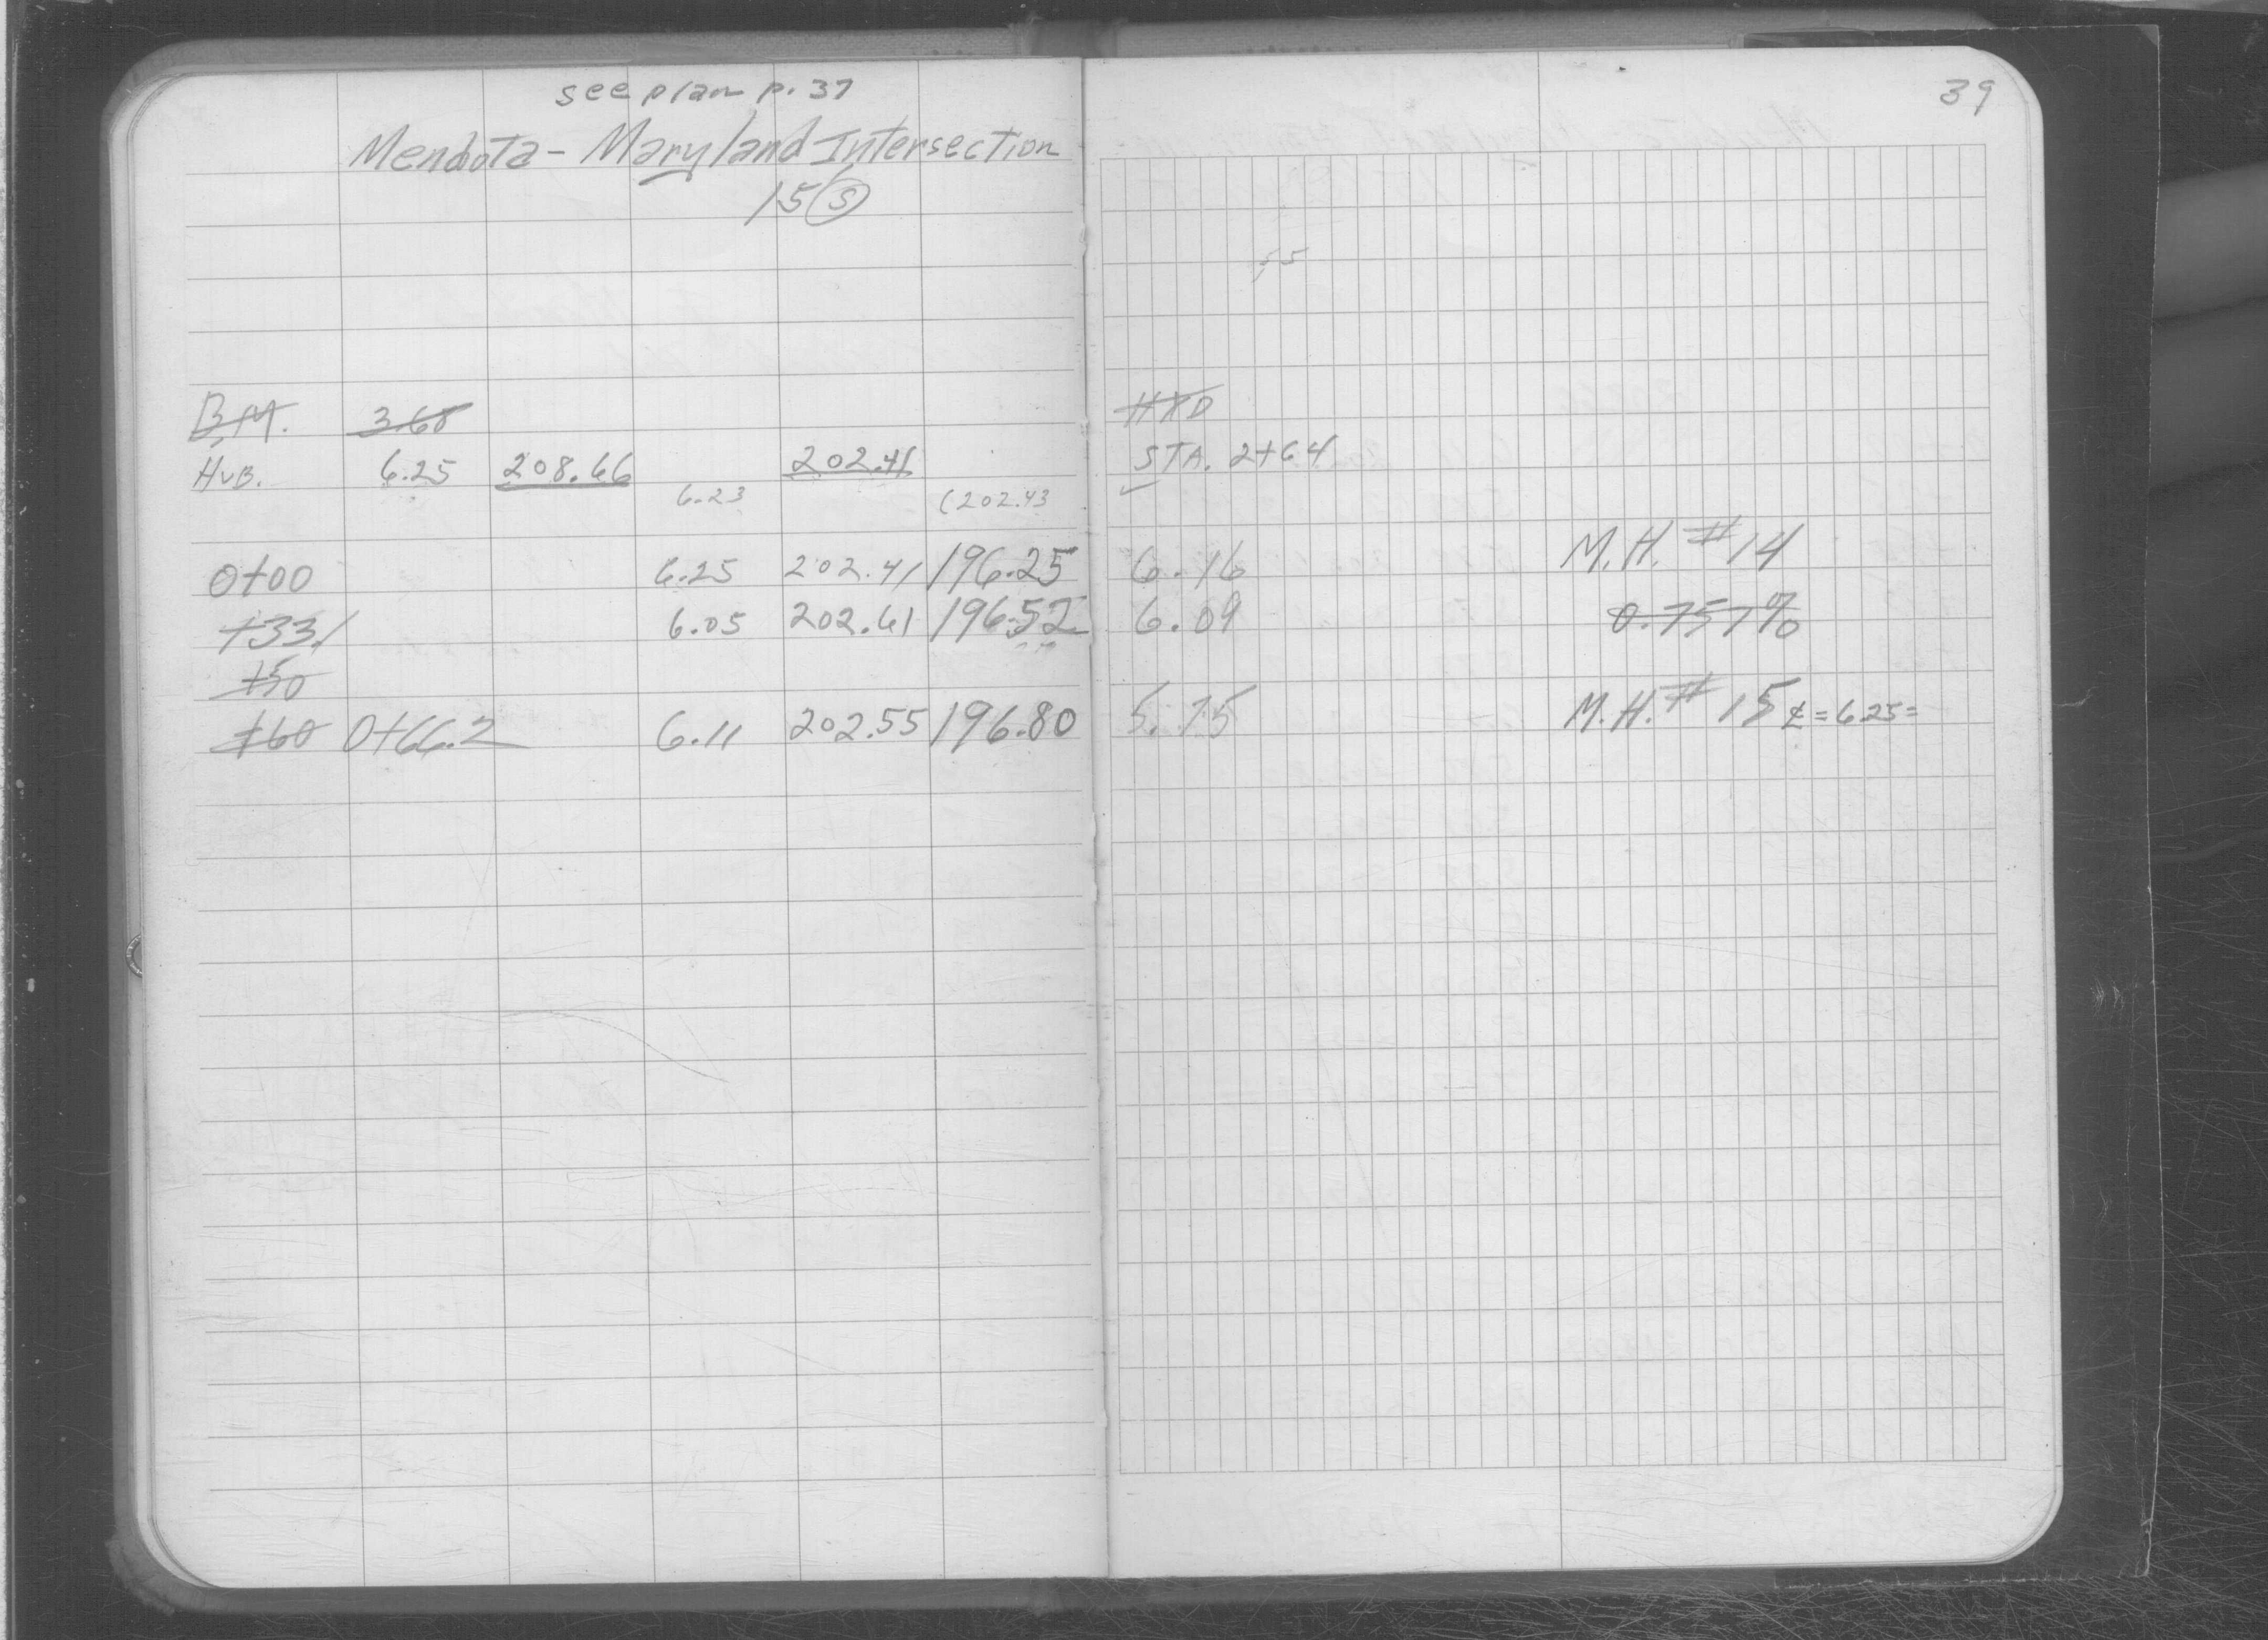 39
see plan p. 37
Mendota - Maryland Intersection
15 (S)
B.M. 3.68
HUB. 6.25 208.66 202.41 STA. 2+64
6.23 (202.43
0+00 6.25 202.41 196.25 6.16 M.H. #14
+33.1 6.05 202.61 196.52 6.09 0.757%
+50
+60 0+66.2 6.11 202.55 196.80 5.75 M.H. # 15 ℄ = 6.25 =